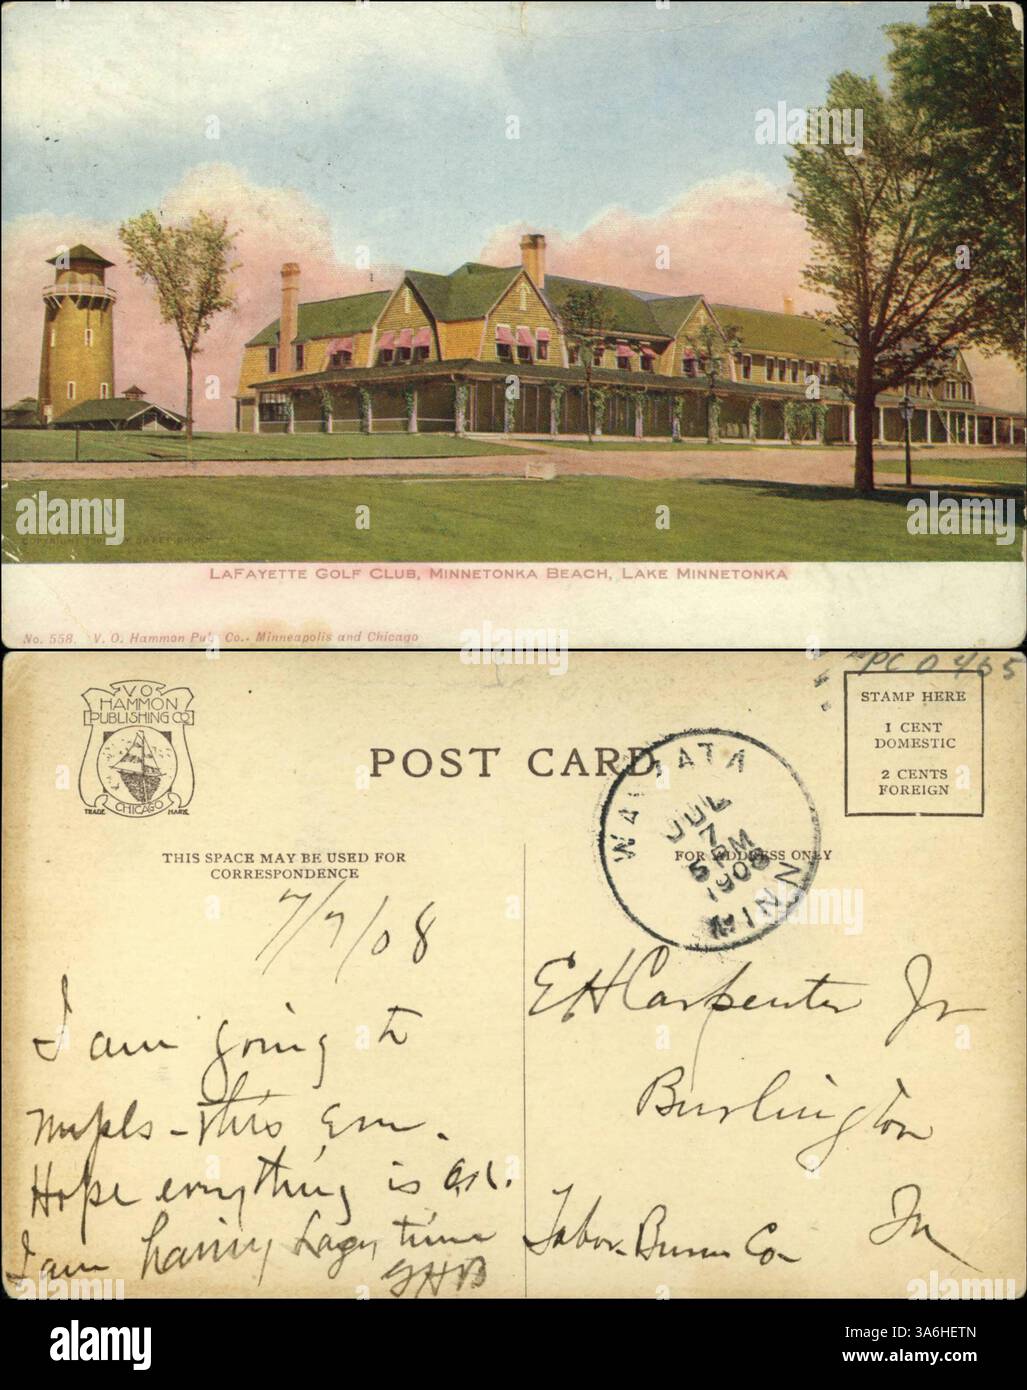 COPYRIGHT 190
LAFAYETTE GOLF CLUB, MINNETONKA BEACH, LAKE MINNETONKA
No. 558. V. O. Hammon Pub. Co., Minneapolis and Chicago
PC 0465
V O
HAMMON
PUBLISHING CO
CHICAGO
TRADE MARK
STAMP HERE
1 CENT
DOMESTIC
2 CENTS
FOREIGN
POST CARD
WAYZATA
JUL
7
5 PM
1908
MINN
THIS SPACE MAY BE USED FOR
CORRESPONDENCE
FOR ADDRESS ONLY
7/7/08
I am going to
Mpls - this
Hope everything is O.K.
I am time
E H Carpenter Jr
Burlington
Ia
alamy
Image ID: 3A6HETN
www.alamy.com